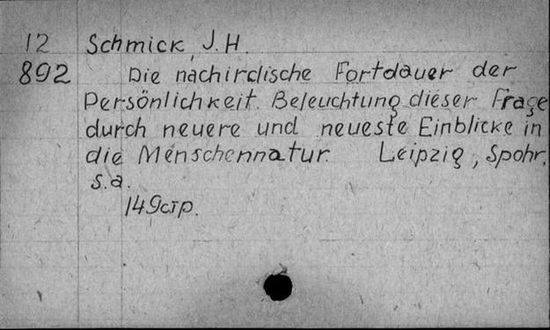 12 Schmick, J.H.
892 Die nachirdische Fortdauer der
Persönlichkeit. Beleuchtung dieser Frage
durch neuere und neueste Einblicke in
die Menschennatur. Leipzig, Spohr,
s.a.
149стр.